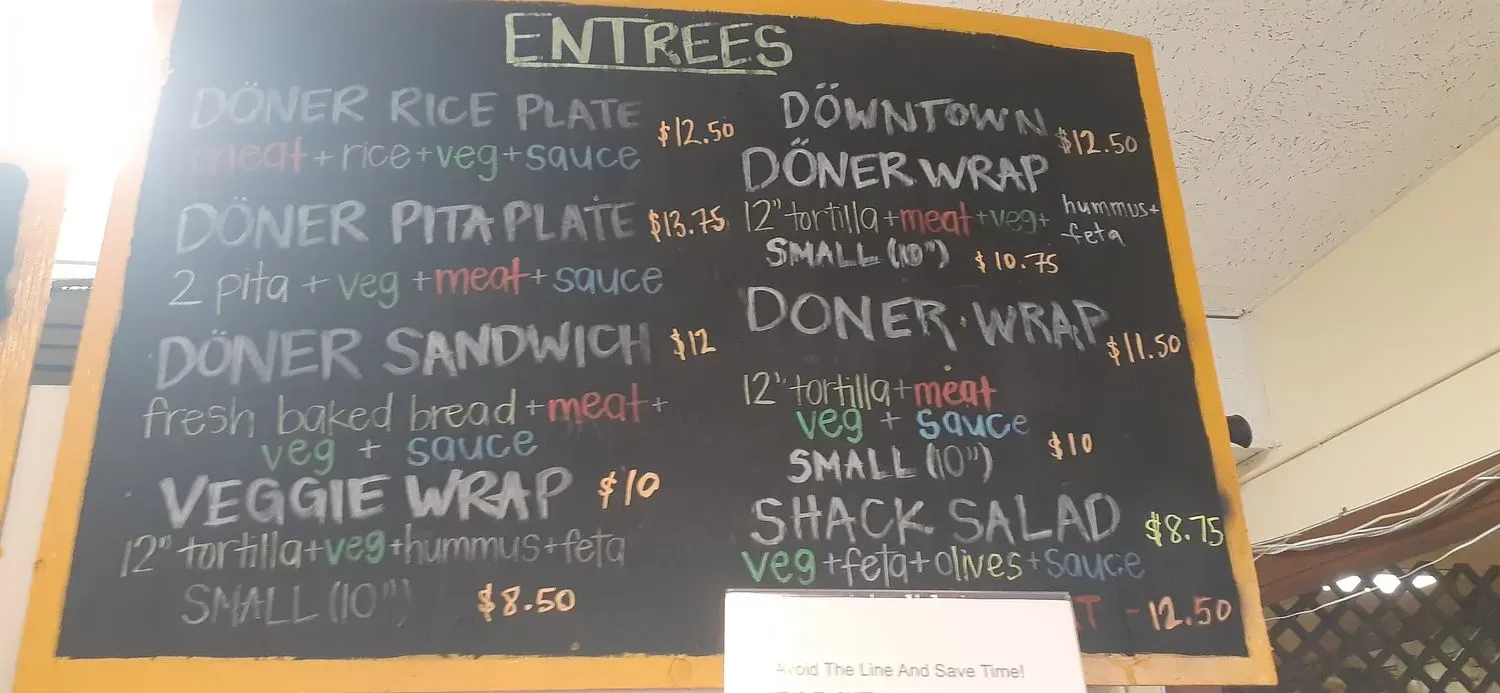 ENTREES
DÖNER RICE PLATE $12.50
meat+rice+veg+sauce
DÖNER PITA PLATE $13.75
2 pita + veg + meat + sauce
DÖNER SANDWICH $12
fresh baked bread + meat +
veg + sauce
VEGGIE WRAP $10
12" tortilla+veg+hummus+feta
SMALL (10") $8.50
DÖWNTOWN $12.50
DÖNER WRAP
12" tortilla+meat+veg+ hummus+
feta
SMALL (10") $10.75
DONER WRAP $11.50
12" tortilla+meat
veg + sauce
SMALL (10") $10
SHACK SALAD $8.75
veg+feta+olives+sauce
- 12.50
Avoid The Line And Save Time!